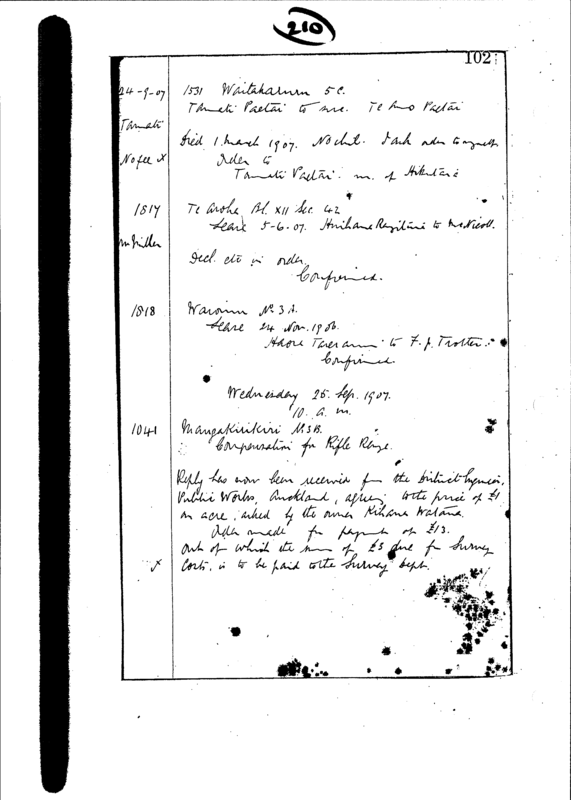 210
102
24-9-07 1531 Waitakaruru 5C.
Tamati Paetai to succ. Te Paetai
Tamati
Died 1 March 1907. No chil.
No fee X Order to
Tamati Paetai. m. of
1817 Te Aroha Bl. XII Sec. 42
Lease 5-6-07. to McNicoll.
Miller
Decl. etc in order
Confirmed.
1818 No 3A.
Lease 24 Nov. 1906.
to F. J. Trotter.
Confirmed.
Wednesday 25. Sep. 1907.
10. a.m.
1041 Mangakirikiri No 3B.
Compensation for Rifle Range.
Reply has now been received from the District Engineer,
Public Works, Auckland, agreeing to the price of £1
an acre, asked by the owner Kihana Watana
Order made for payment of £13.
out of which the sum of £3 due for Survey
x Costs, is to be paid to the Survey Dept.